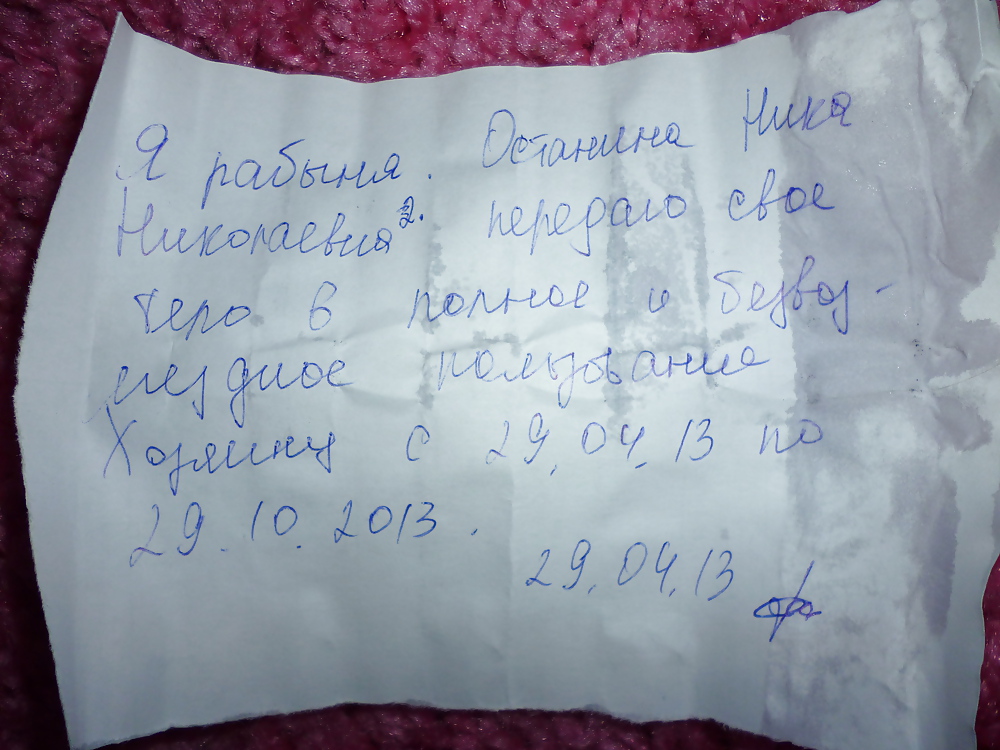 Я рабыня. Останина Ника
Николаевна 2. передаю свое
тело в полное и безвоз-
мездное пользование
Хозяину с 29.04.13 по
29.10.2013.
29.04.13